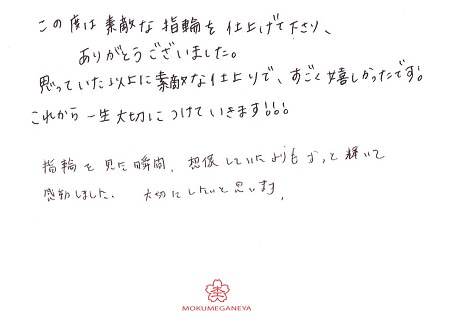 この度は素敵な指輪を仕上げて下さり、
ありがとうございました。
思っていた以上に素敵な仕上りで、すごく嬉しかったです!
これから一生大切につけていきます!!!
指輪を見た瞬間、想像していたよりもずっと輝いて
感動しました。 大切にしたいと思います。
MOKUMEGANEYA